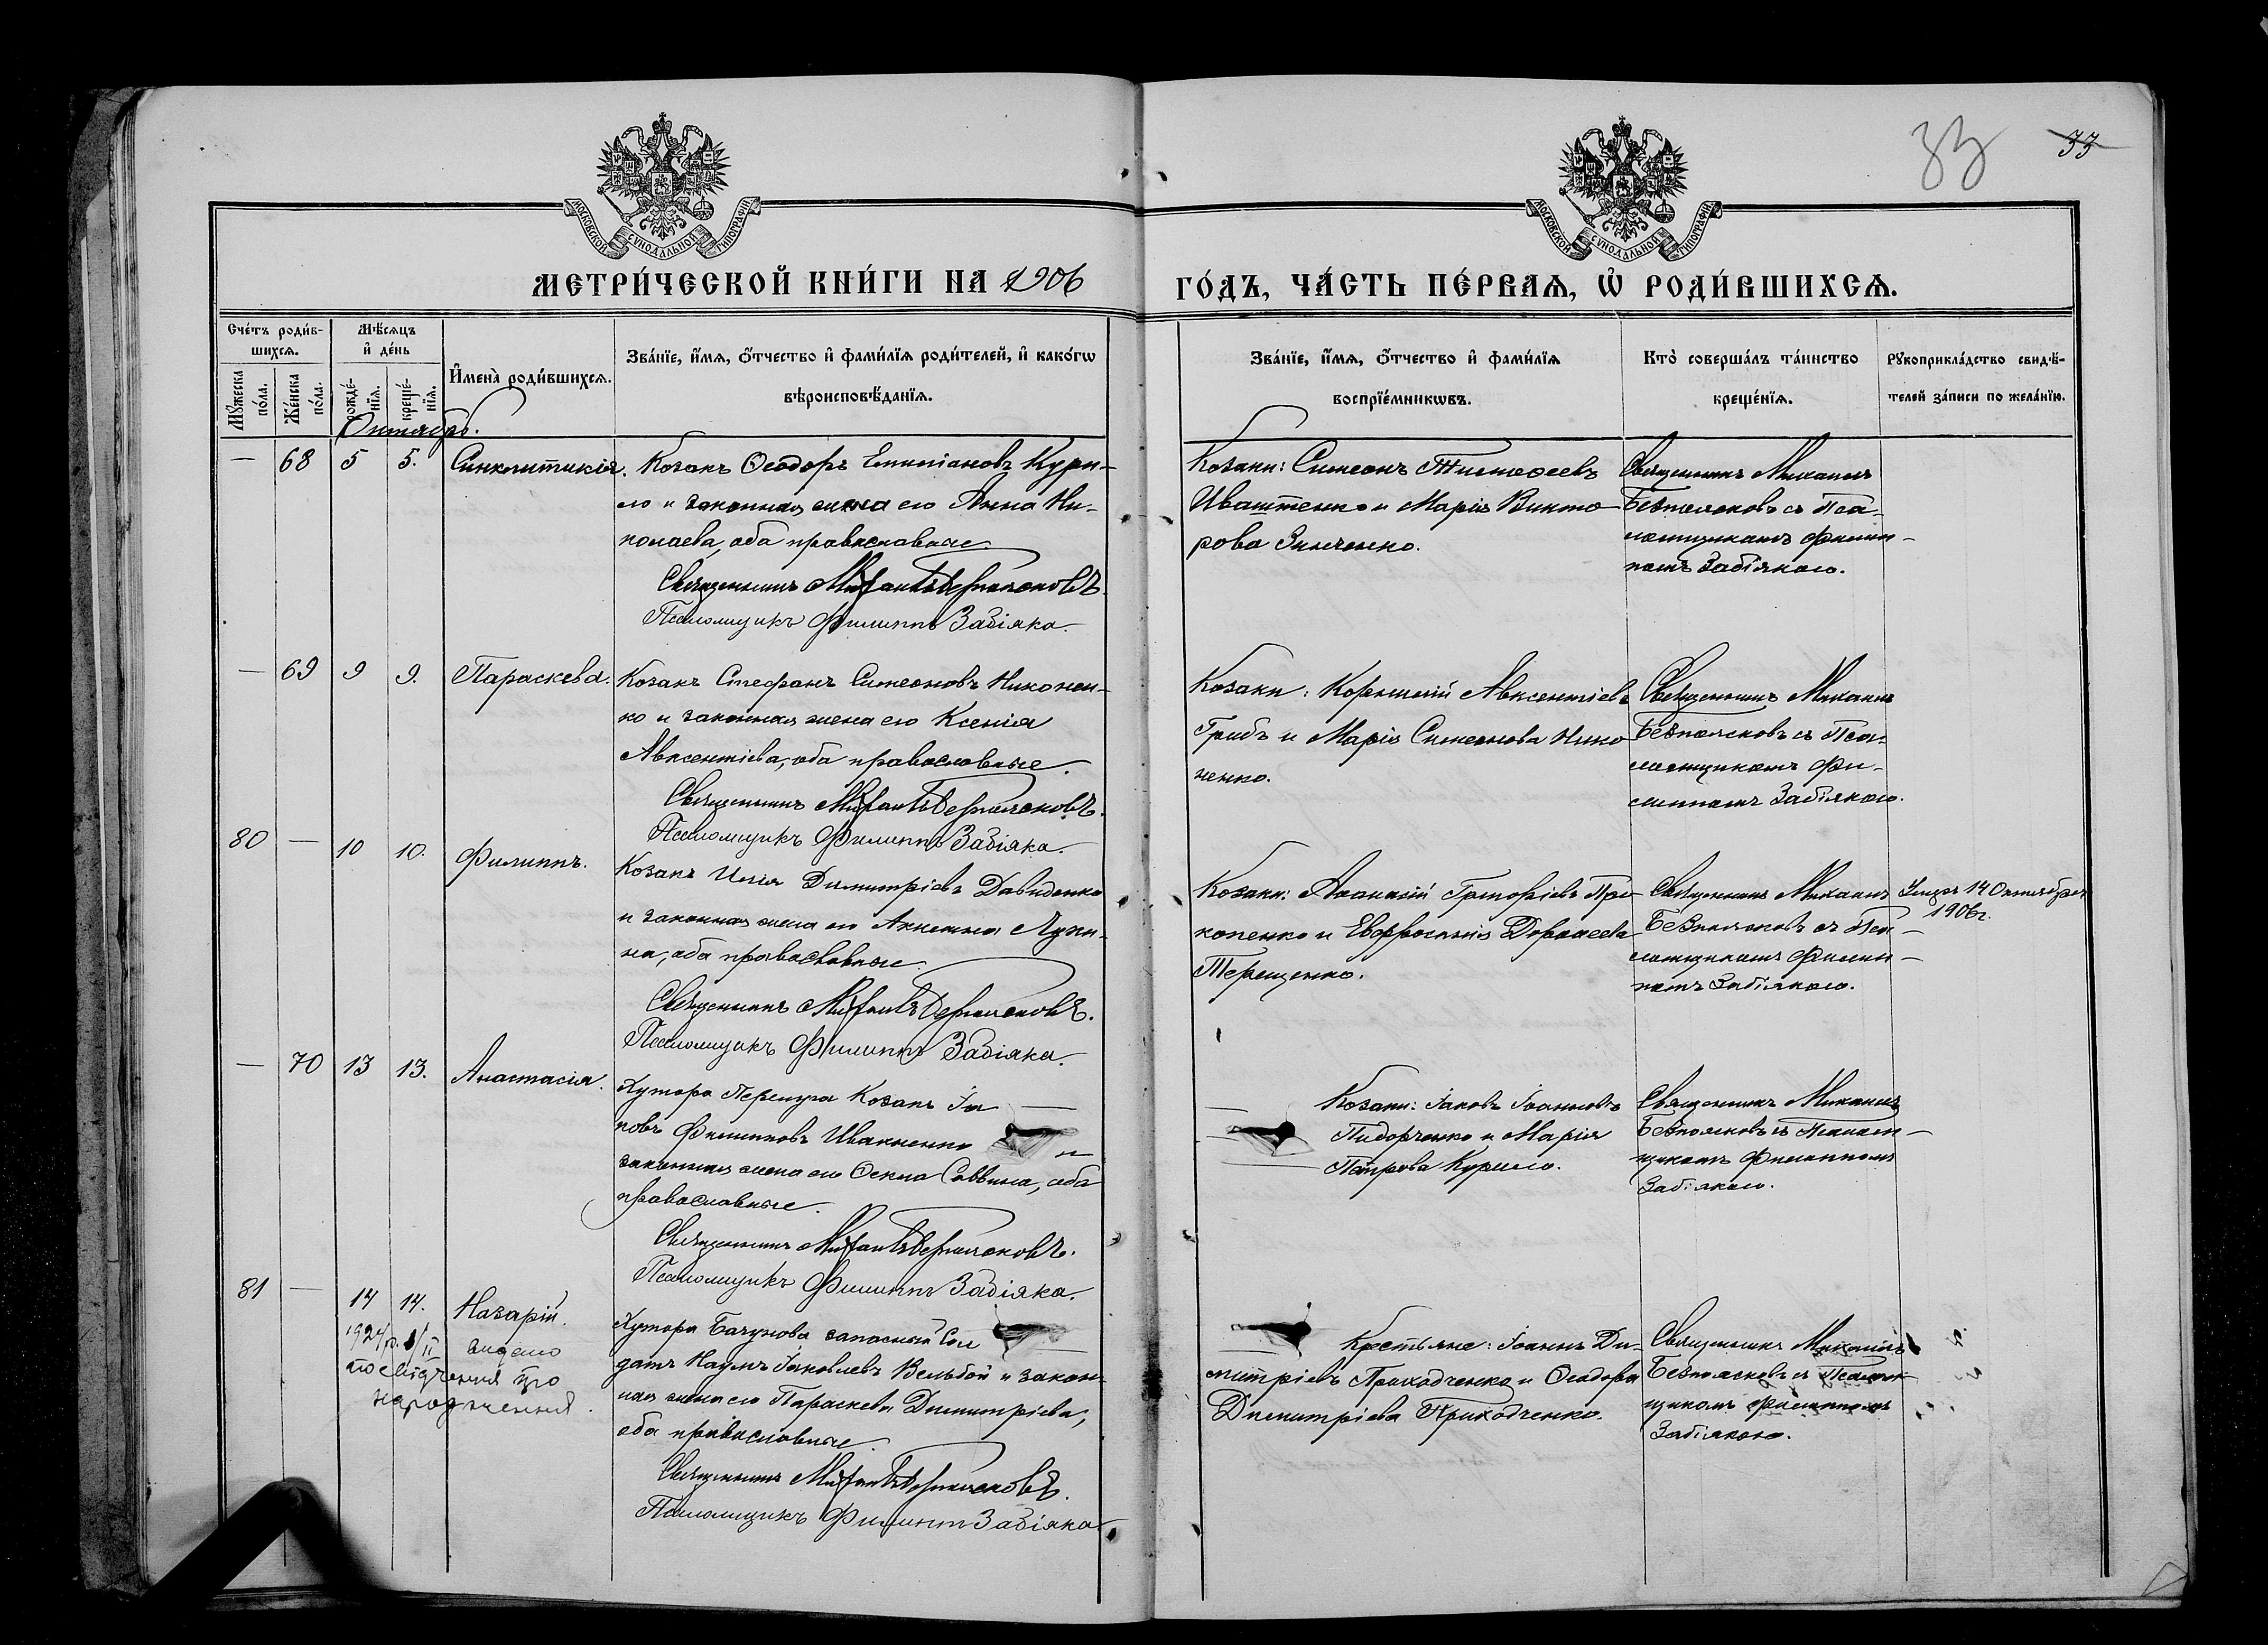 33 33
МОСКОВСКОЙ СУНОДАЛЬНОЙ ТИПОГРАФІИ
МОСКОВСКОЙ СУНОДАЛЬНОЙ ТИПОГРАФІИ
МЕТРИ́ЧЕСКОЙ КНИ́ГИ НА 1906
ГО́ДЪ, ЧА́СТЬ ПЕ́РВАѦ, Ѡ҆ РОДИ́ВШИХСѦ.
Сче́тъ роди́в-
шихсѧ.
Мꙋ́жеска
по́ла.
Же́нска
по́ла.
Мѣ́сѧцъ
и҆ де́нь
рожде́-
нїѧ.
креще́-
нїѧ.
И҆мена̀ роди́вшихсѧ.
Зва́нїе, и҆́мѧ, ѻ҆́тчество и҆ фами́лїѧ роди́телей, и҆ како́гѡ
вѣроисповѣ́данїѧ.
Зва́нїе, и҆́мѧ, ѻ҆́тчество и҆ фами́лїѧ
воспрїе́мникѡвъ.
Кто̀ соверша́лъ та́инство
креще́нїѧ.
Рꙋкоприкла́дство свидѣ́-
телей за́писи по жела́нїю.
Октябрь.
— 68 5 5. Синклитикія.
Козакъ Ѳеодоръ Емиліановъ Кури-
ло и законная жена его Анна Ни-
колаева, оба православные.
Священникъ Михаилъ Безпоясковъ.
Псаломщикъ Филиппъ Забіяка.
Козаки: Симеонъ Тимоѳеевъ
Иваштенко и Марія Викто-
рова Зинченко.
Священникъ Михаилъ
Безпоясковъ съ Пса-
ломщикомъ Филип-
помъ Забіякою.
— 69 9 9. Параскева.
Козакъ Стефанъ Симеоновъ Никонен-
ко и законная жена его Ксенія
Авксентіева, оба православные.
Священникъ Михаилъ Безпоясковъ.
Псаломщикъ Филиппъ Забіяка.
Козаки: Корнилій Авксентіевъ
Грибъ и Марія Симеонова Нико
ненко.
Священникъ Михаилъ
Безпоясковъ съ Пса-
ломщикомъ Фи-
липпомъ Забіякою.
80 — 10 10. Филиппъ.
Козакъ Илія Димитріевъ Давиденко
и законная жена его Акилина Луки-
на, оба православные.
Священникъ Михаилъ Безпоясковъ.
Псаломщикъ Филиппъ Забіяка.
Козаки: Аѳанасій Григоріевъ Про
копенко и Евфросинія Дороѳеева
Терещенко.
Священникъ Михаилъ
Безпоясковъ съ Пса-
ломщикомъ Филип-
помъ Забіякою.
Умеръ 14 Октября
1906 г.
— 70 13 13. Анастасія.
Хутора Козакъ Іа
ковъ Филипповъ Ивахненко и
законная жена его Ѳекла Саввина, оба
православные.
Священникъ Михаилъ Безпоясковъ.
Псаломщикъ Филиппъ Забіяка.
Козаки: Іаковъ Іоанновъ
Пидорченко и Марія
Петрова Курило.
Священникъ Михаилъ
Безпоясковъ съ Псалом-
щикомъ Филиппомъ
Забіякою.
81 — 14 14. Назарій.
видано
посвідчення про
народження.
Хутора Бачунова запасный Сол
датъ Наумъ Іаковлевъ Вельбой и закон-
ная жена его Параскева Димитріева,
оба православные.
Священникъ Михаилъ Безпоясковъ.
Псаломщикъ Филиппъ Забіяка.
Крестьяне: Іоаннъ Ди-
митріевъ Приходченко и Ѳеодора
Димитріева Приходченко.
Священникъ Михаилъ
Безпоясковъ съ Псалом-
щикомъ Филиппомъ
Забіякою.